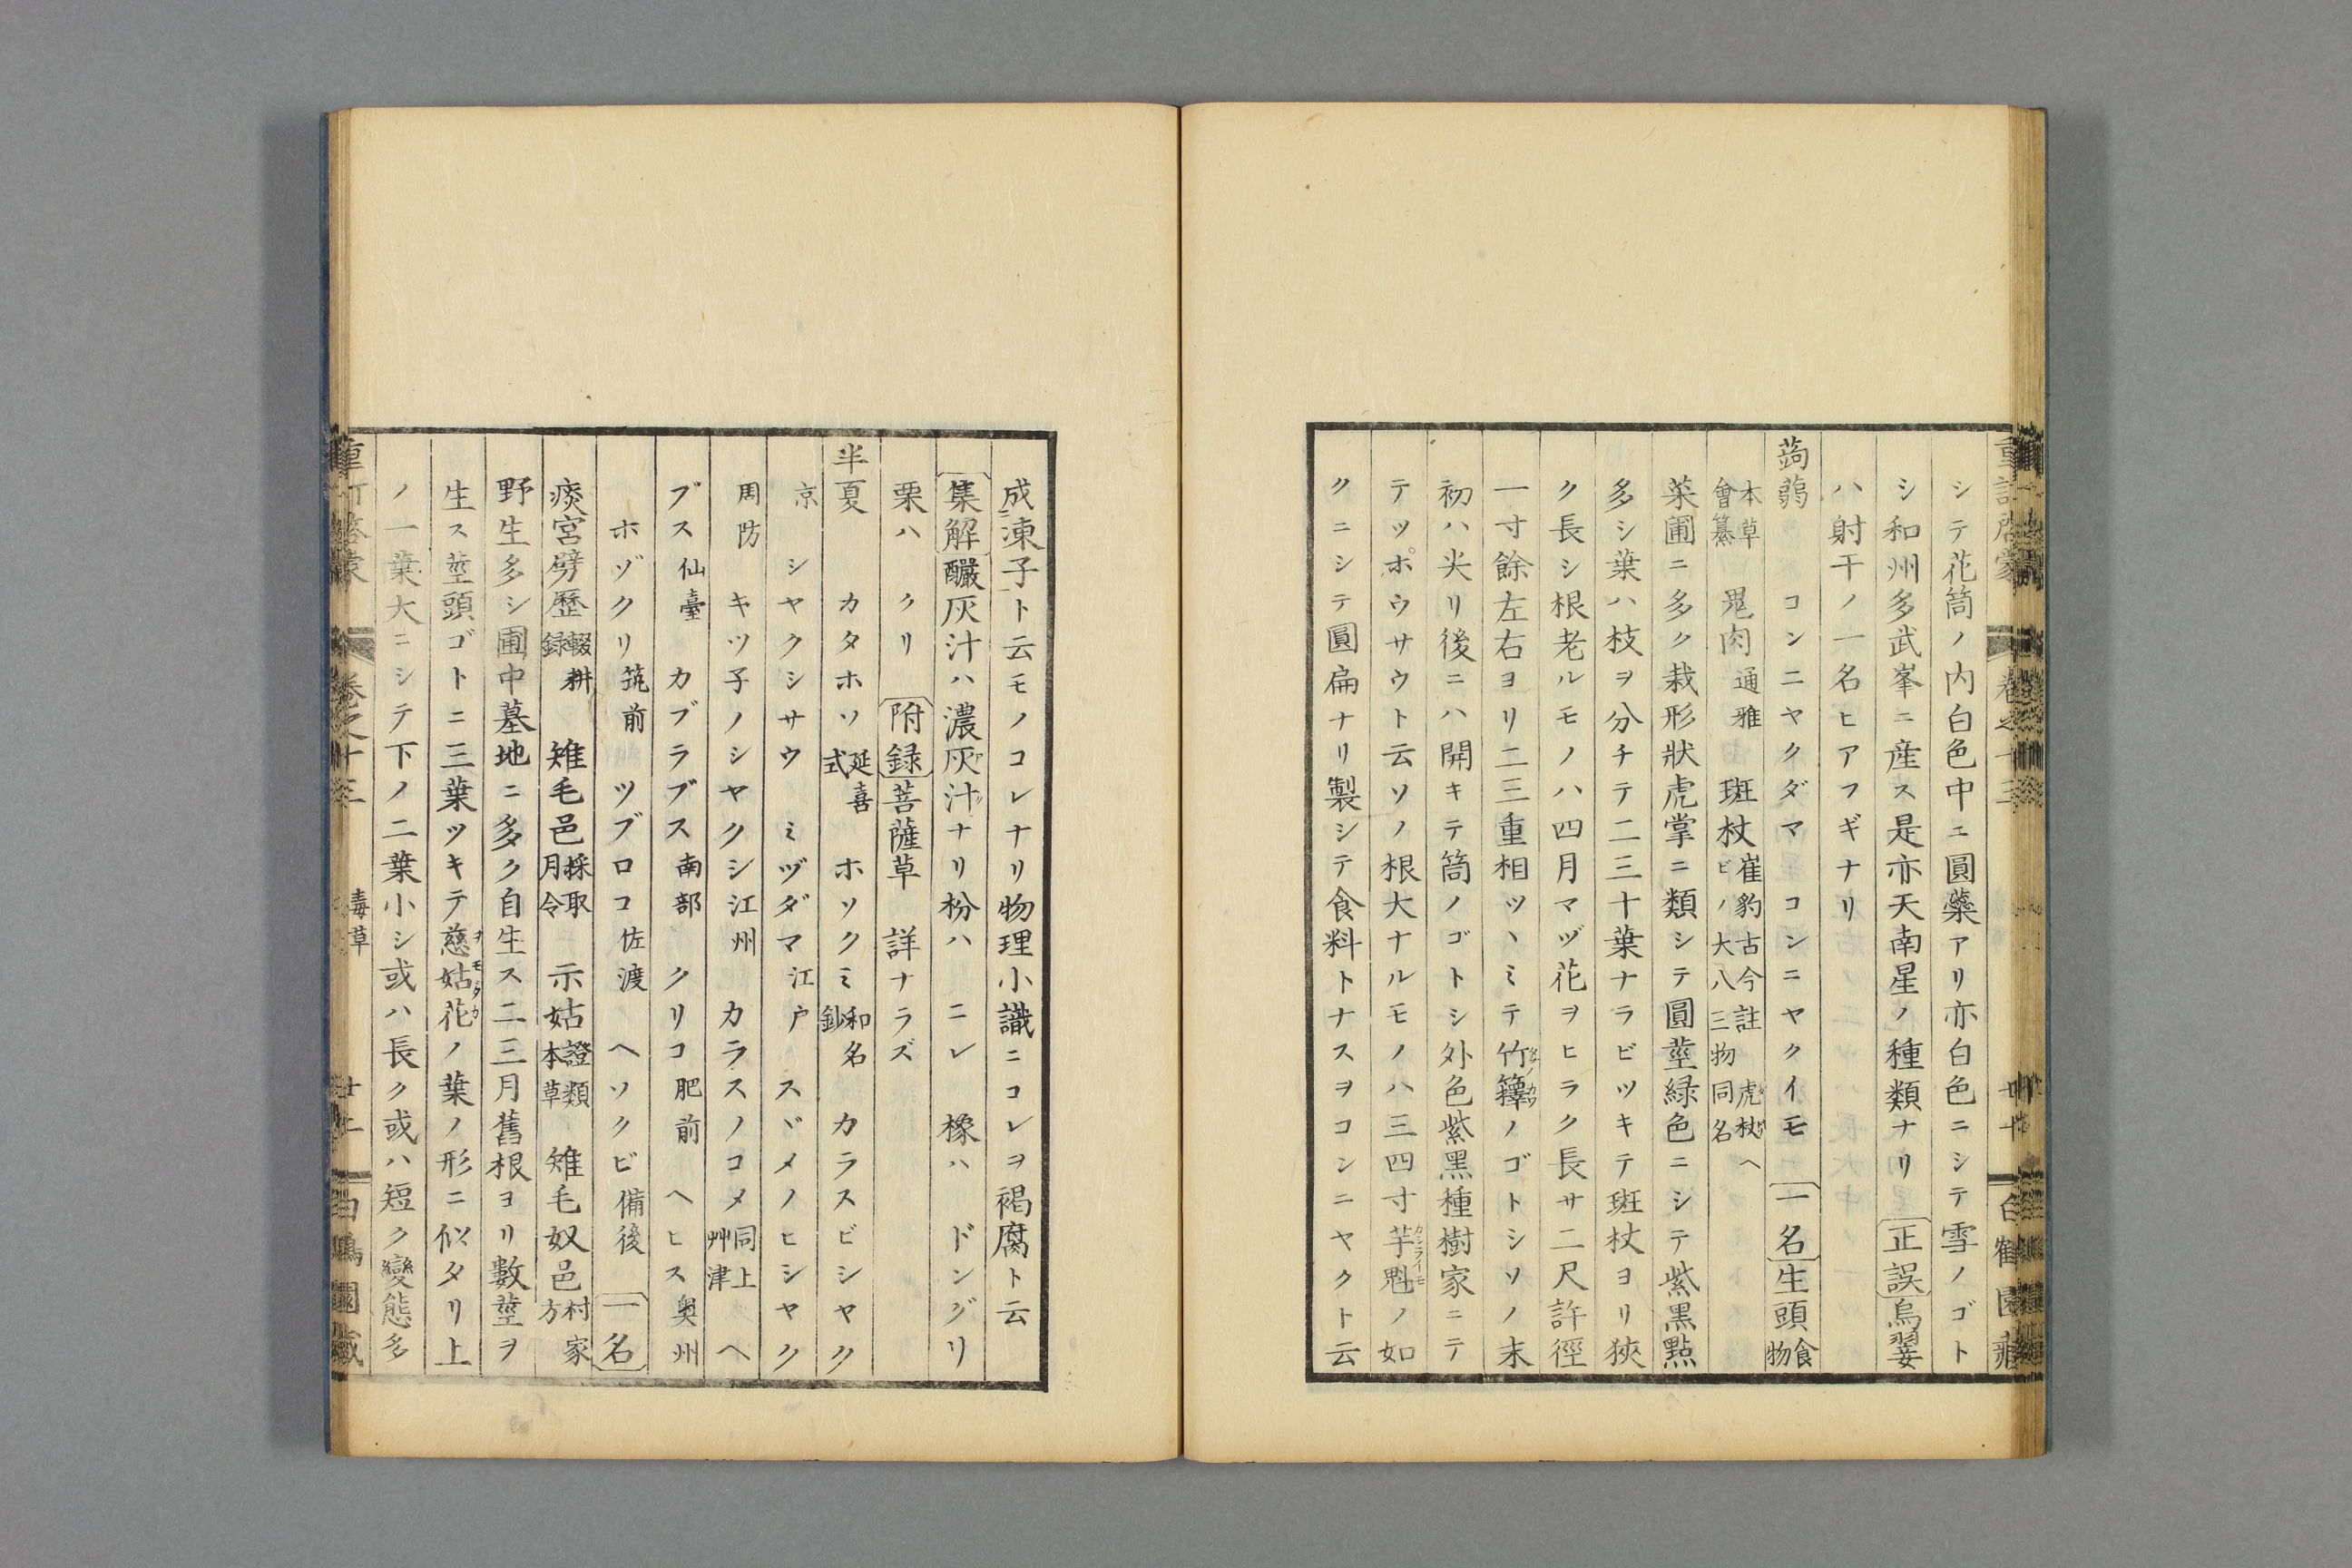 シテ花筒ノ内白色中ニ圓藥アリ亦白色ニシテ雪ノゴト
シ和州多武峯ニ産ス是亦天南星ノ種類ナリ 正誤 烏翣
ハ射干ノ一名ヒアフギナリ
蒟蒻 コンニヤクダマ コンニヤクイモ 一名 生頭 食物
本草會纂 鬼肉 通雅 斑杖 崔豹古今註 虎杖ヘビノ大八三物同名
菜圃ニ多ク栽形狀虎掌ニ類シテ圓莖緑色ニシテ紫黑點
多シ葉ハ枝ヲ分チテ二三十葉ナラビツキテ斑杖ヨリ狹
ク長シ根老ルモノハ四月マヅ花ヲヒラク長サ二尺許徑
一寸餘左右ヨリ二三重相ツヽミテ竹籜ノゴトシソノ末
初ハ尖リ後ニハ開キテ筒ノゴトシ外色紫黑種樹家ニテ
テツポウサウト云ソノ根大ナルモノハ三四寸芋魁ノ如
クニシテ圓扁ナリ製シテ食料トナスヲコンニヤクト云
成凍子ト云モノコレナリ物理小識ニコレヲ褐腐ト云
集解 釅灰汁ハ濃灰汁ナリ枌ハ ニレ 橡ハ ドングリ
栗ハ クリ 附録 菩薩草 詳ナラズ
半夏 カタホソ 延喜式 ホソクミ 和名鈔 カラスビシヤク
京 シヤクシサウ ミヅダマ 江戸 スヾメノヒシヤク
周防 キツ子ノシヤクシ 江州 カラスノコメ 同上艸津 ヘ
ブス 仙臺 カブラブス 南部 クリコ 肥前 ヘヒス 奥州
ホゾクリ 筑前 ツブロコ 佐渡 ヘソクビ 備後 一名
痰宮劈歷 輟耕録 雉毛邑 採取月令 示姑 證類本草 雉毛奴邑 村家方
野生多シ圃中墓地ニ多ク自生ス二三月舊根ヨリ數莖ヲ
生ス莖頭ゴトニ三葉ツキテ慈姑花ノ葉ノ形ニ似タリ上
ノ一葉大ニシテ下ノ二葉小シ或ハ長ク或ハ短ク變態多